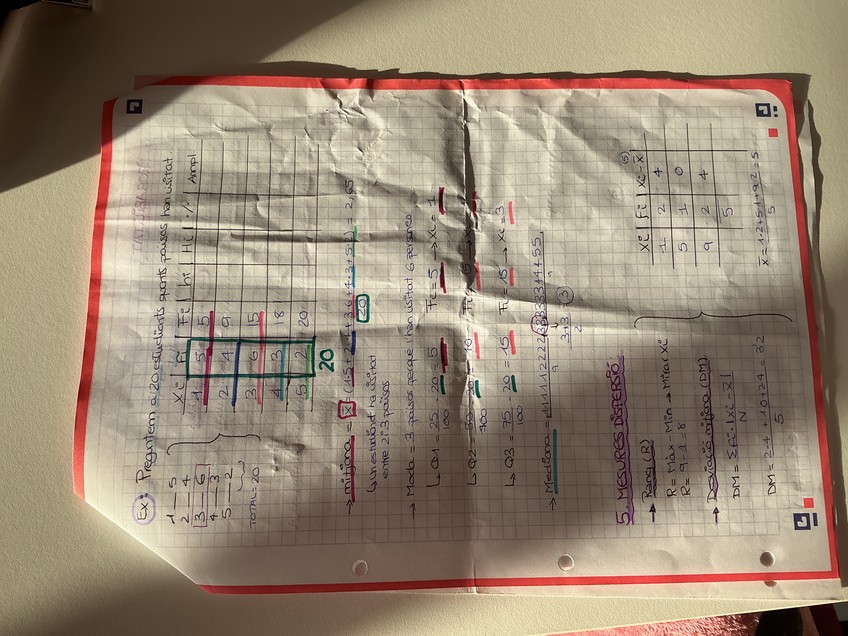 Ex: Preguntem a 20 estudiants quants països han visitat.
1 — 5
2 — 4
3 — 6
4 — 3
5 — 2
TOTAL=20
Xi | fi | Fi | hi | Hi | % | Ampl
1 | 5 | 5
2 | 4 | 9
3 | 6 | 15
4 | 3 | 18
5 | 2 | 20
20
→ mitjana = x̄ = (1·5+2·4+3·6+4·3+5·2) = 2,65
20
↳ Un estudiant ha visitat
entre 2 i 3 països
→ Moda = 3 països perquè han visitat 6 persones
↳ Q1 = 25 · 20 = 5 Fi = 5 → Xi = 1
100
↳ Q2 = 50 · 20 = 10
100
↳ Q3 = 75 · 20 = 15 Fi = 15 → Xi = 3
100
→ Mediana = 11111222233333344455
9 9
3+3 = 3
2
5. MESURES DISPERSIÓ
→ Rang (R)
R = Màx - Min → Mirar Xi
R = 9-1 = 8
→ Desviació mitjana (DM)
DM = Σfi·|Xi - x̄|
N
DM = 2·4 + 1·0 + 2·4 = 3'2
5
Xi | fi | Xi - x̄ (5)
1 | 2 | 4
5 | 1 | 0
9 | 2 | 4
5
x̄ = 1·2+5·1+9·2 = 5
5